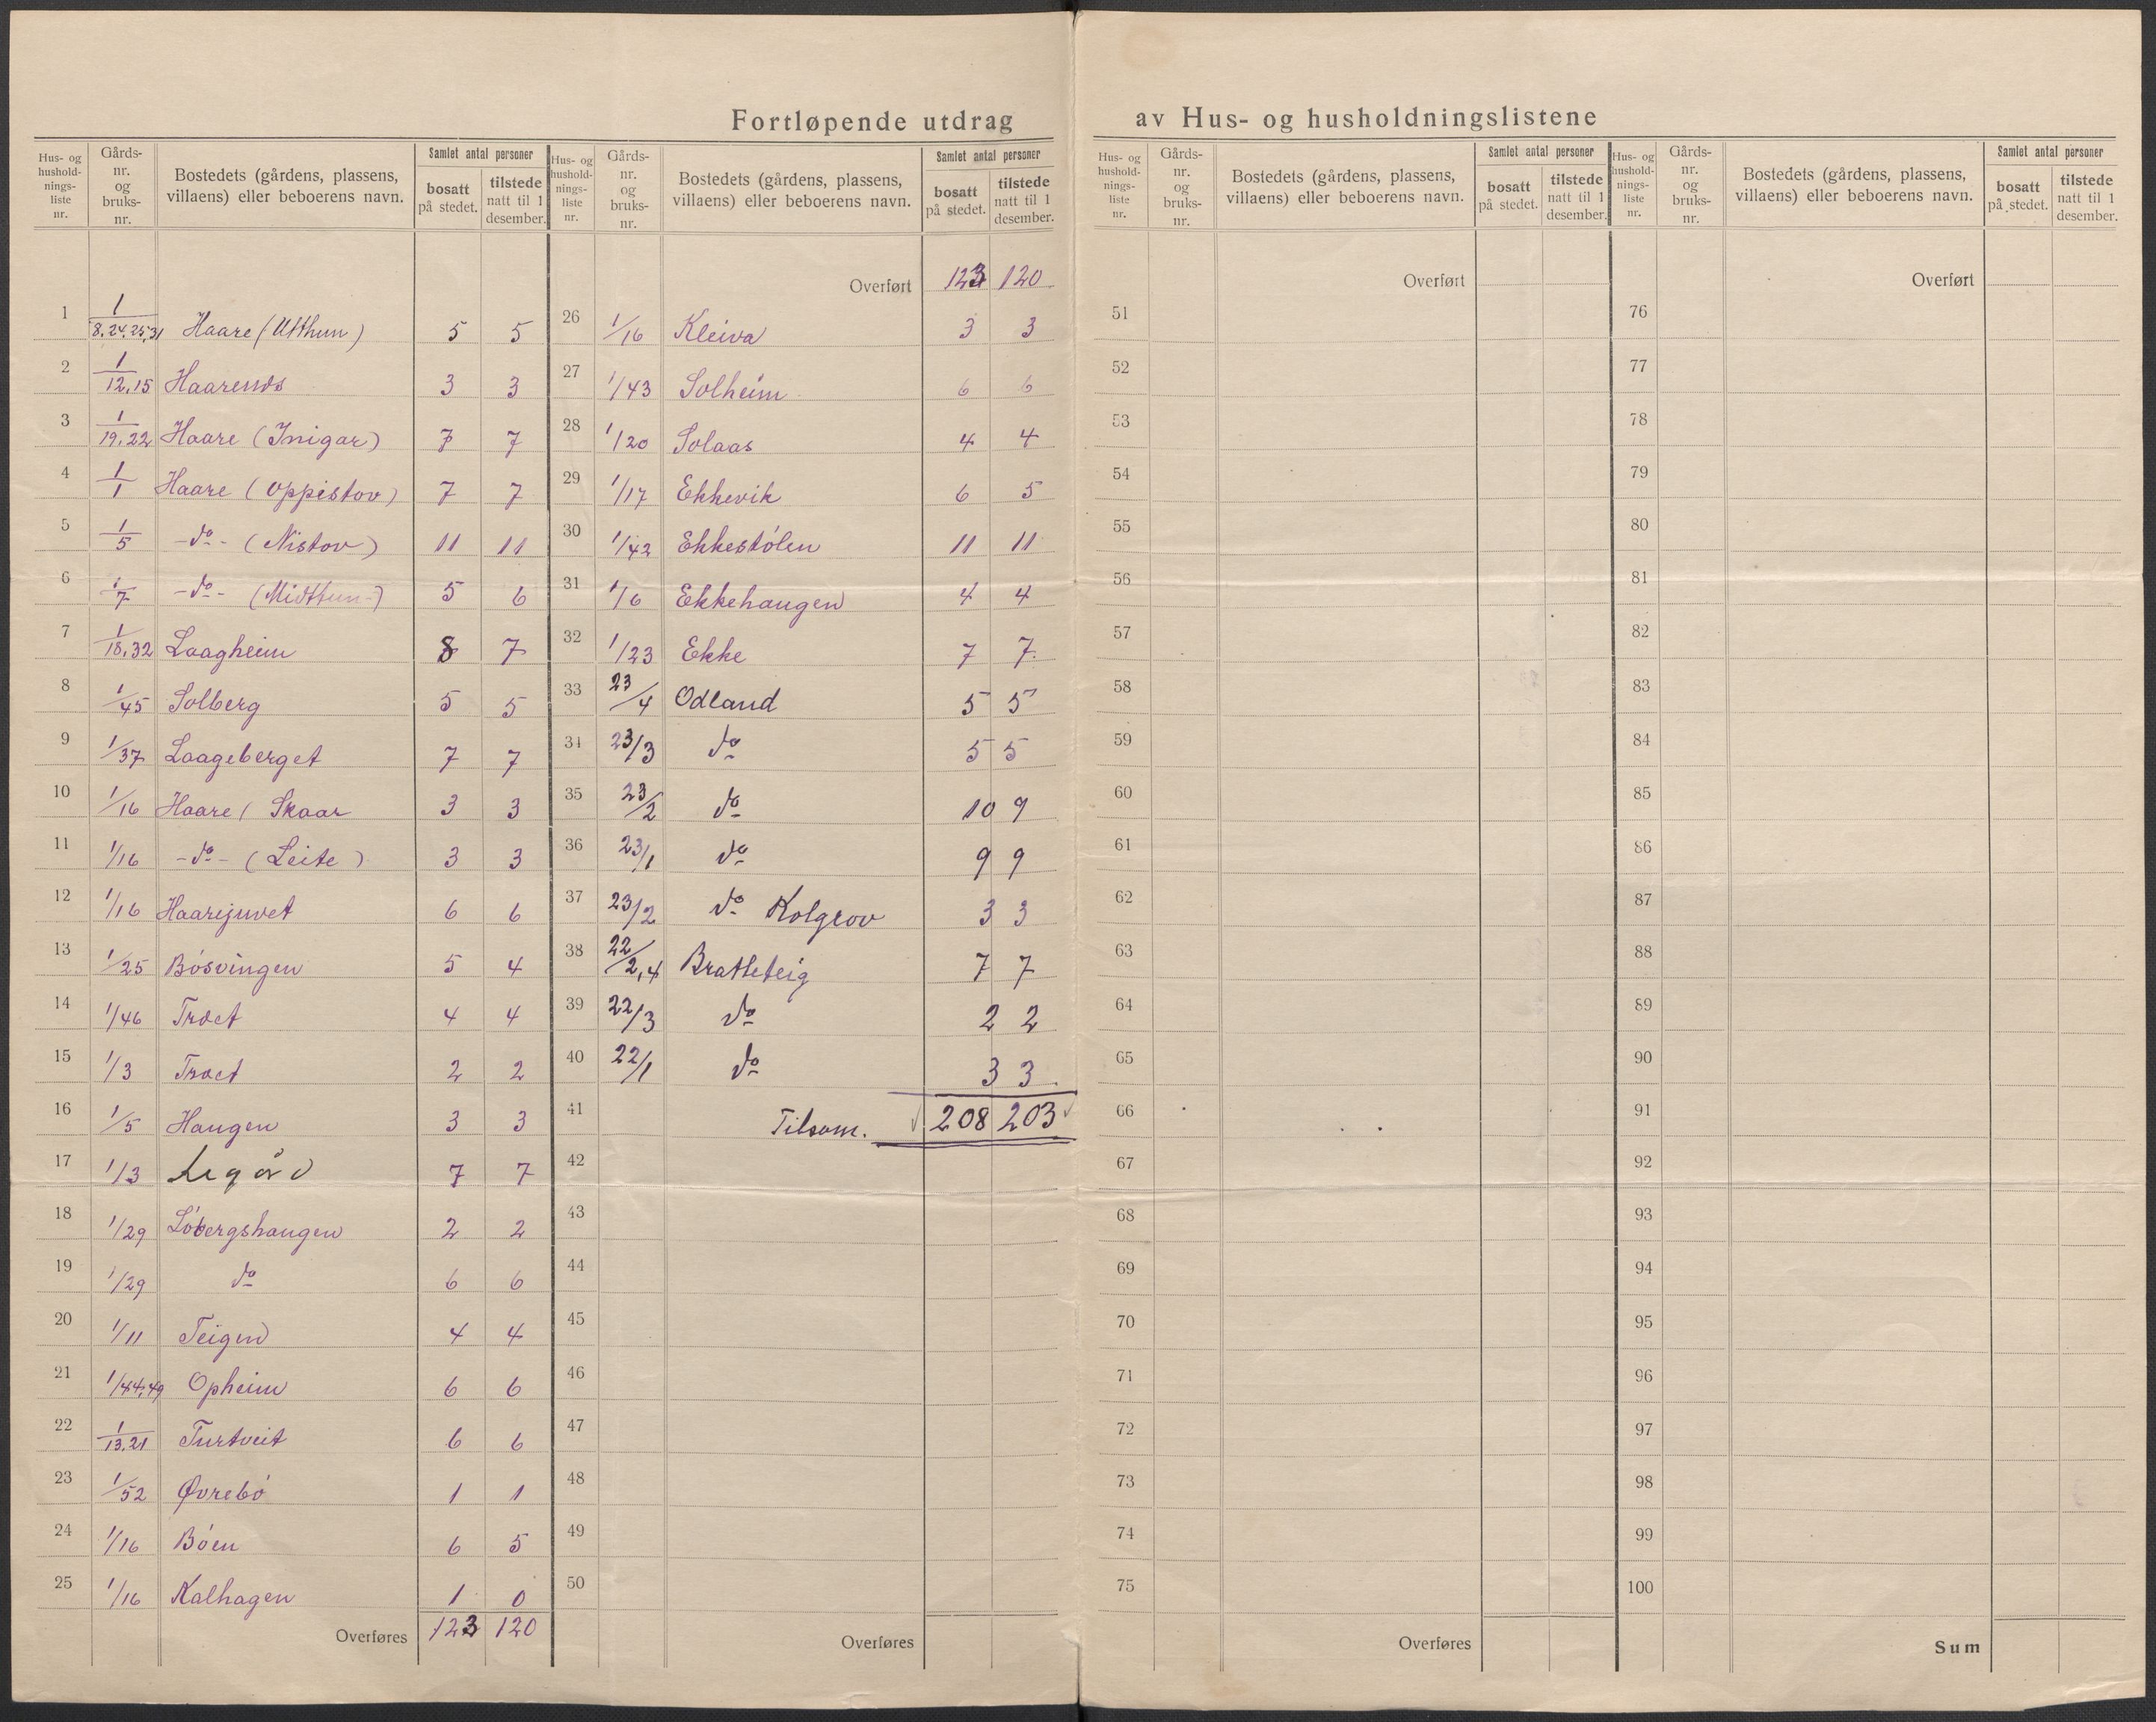 Fortløpende utdrag av Hus- og husholdningslistene
Hus- og hushold-nings-liste nr. Gårds-nr. og bruks-nr. Bostedets (gårdens, plassens, villaens) eller beboerens navn. Samlet antal personer bosatt på stedet. tilstede natt til 1 desember.
1 1/8,24,25,31 Haare (Utthun) 5 5
2 1/12,15 Haarends 3 3
3 1/19,22 Haare (Inigar) 7 7
4 1/1 Haare (Oppistov) 7 7
5 1/5 -do- (Nistov) 11 11
6 1/7 -do- (Midttun) 5 6
7 1/18,32 Laagheim 8 7
8 1/45 Solberg 5 5
9 1/37 Laageberget 7 7
10 1/16 Haare ( Skaar 3 3
11 1/16 -do- (Leite) 3 3
12 1/16 Haarejuvet 6 6
13 1/25 Bósvingen 5 4
14 1/46 Træet 4 4
15 1/3 Træet 2 2
16 1/5 Haugen 3 3
17 1/3 Legård 7 7
18 1/29 Lóbergshaugen 2 2
19 1/29 do 6 6
20 1/11 Teigen 4 4
21 1/44,49 Opheim 6 6
22 1/13,21 Turtveit 6 6
23 1/52 Øvrebó 1 1
24 1/16 Bóen 6 5
25 1/16 Kalhagen 1 0
Overføres 123 120
Hus- og hushold-nings-liste nr. Gårds-nr. og bruks-nr. Bostedets (gårdens, plassens, villaens) eller beboerens navn. Samlet antal personer bosatt på stedet. tilstede natt til 1 desember.
Overført 123 120
26 1/16 Kleiva 3 3
27 1/43 Solheim 6 6
28 1/20 Solaas 4 4
29 1/17 Ekkevik 6 5
30 1/42 Ekkestólen 11 11
31 1/6 Ekkehaugen 4 4
32 1/23 Ekke 7 7
33 23/4 Odland 5 5
34 23/3 do 5 5
35 23/2 do 10 9
36 23/1 do 9 9
37 23/2 do Kolgrov 3 3
38 22/2,4 Bratteteig 7 7
39 22/3 do 2 2
40 22/1 do 3 3
41 Tilsam. 208 203
42
43
44
45
46
47
48
49
50
Overføres
Hus- og hushold-nings-liste nr. Gårds-nr. og bruks-nr. Bostedets (gårdens, plassens, villaens) eller beboerens navn. Samlet antal personer bosatt på stedet. tilstede natt til 1 desember.
Overført
51
52
53
54
55
56
57
58
59
60
61
62
63
64
65
66
67
68
69
70
71
72
73
74
75
Overføres
Hus- og hushold-nings-liste nr. Gårds-nr. og bruks-nr. Bostedets (gårdens, plassens, villaens) eller beboerens navn. Samlet antal personer bosatt på stedet. tilstede natt til 1 desember.
Overført
76
77
78
79
80
81
82
83
84
85
86
87
88
89
90
91
92
93
94
95
96
97
98
99
100
Sum